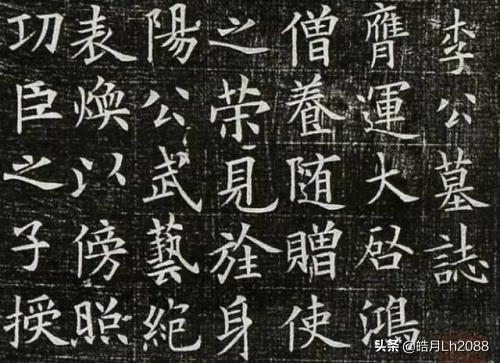 李公墓誌
膺運大启鴻
僧養随贈使
之荣見旌身
陽公武藝絕
表煥以傍照
功臣之子授
头条 @皓月Lh2088